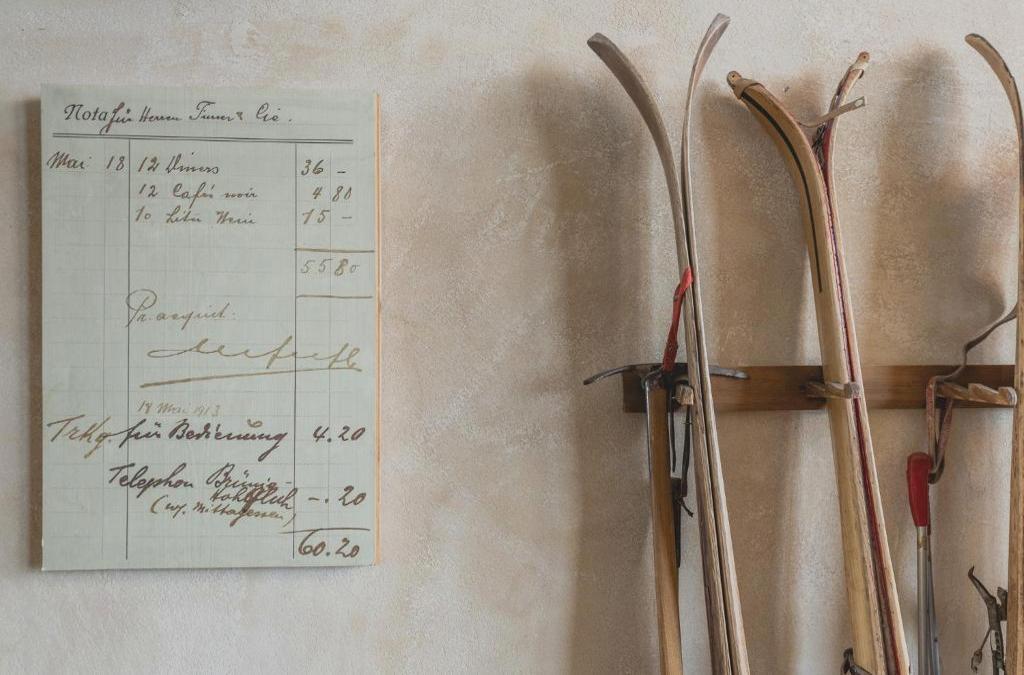 Nota für Herren Furrer & Cie.
Mai 18 12 Diners 36 –
12 Cafés noir 4 80
10 Liter Wein 15 –
55 80
Pr. acquit:
18 Mai 1913
Trkg für Bedienung 4.20
Telephon Brünig-
Hohfluh –.20
(w/. Mittagessen)
60.20